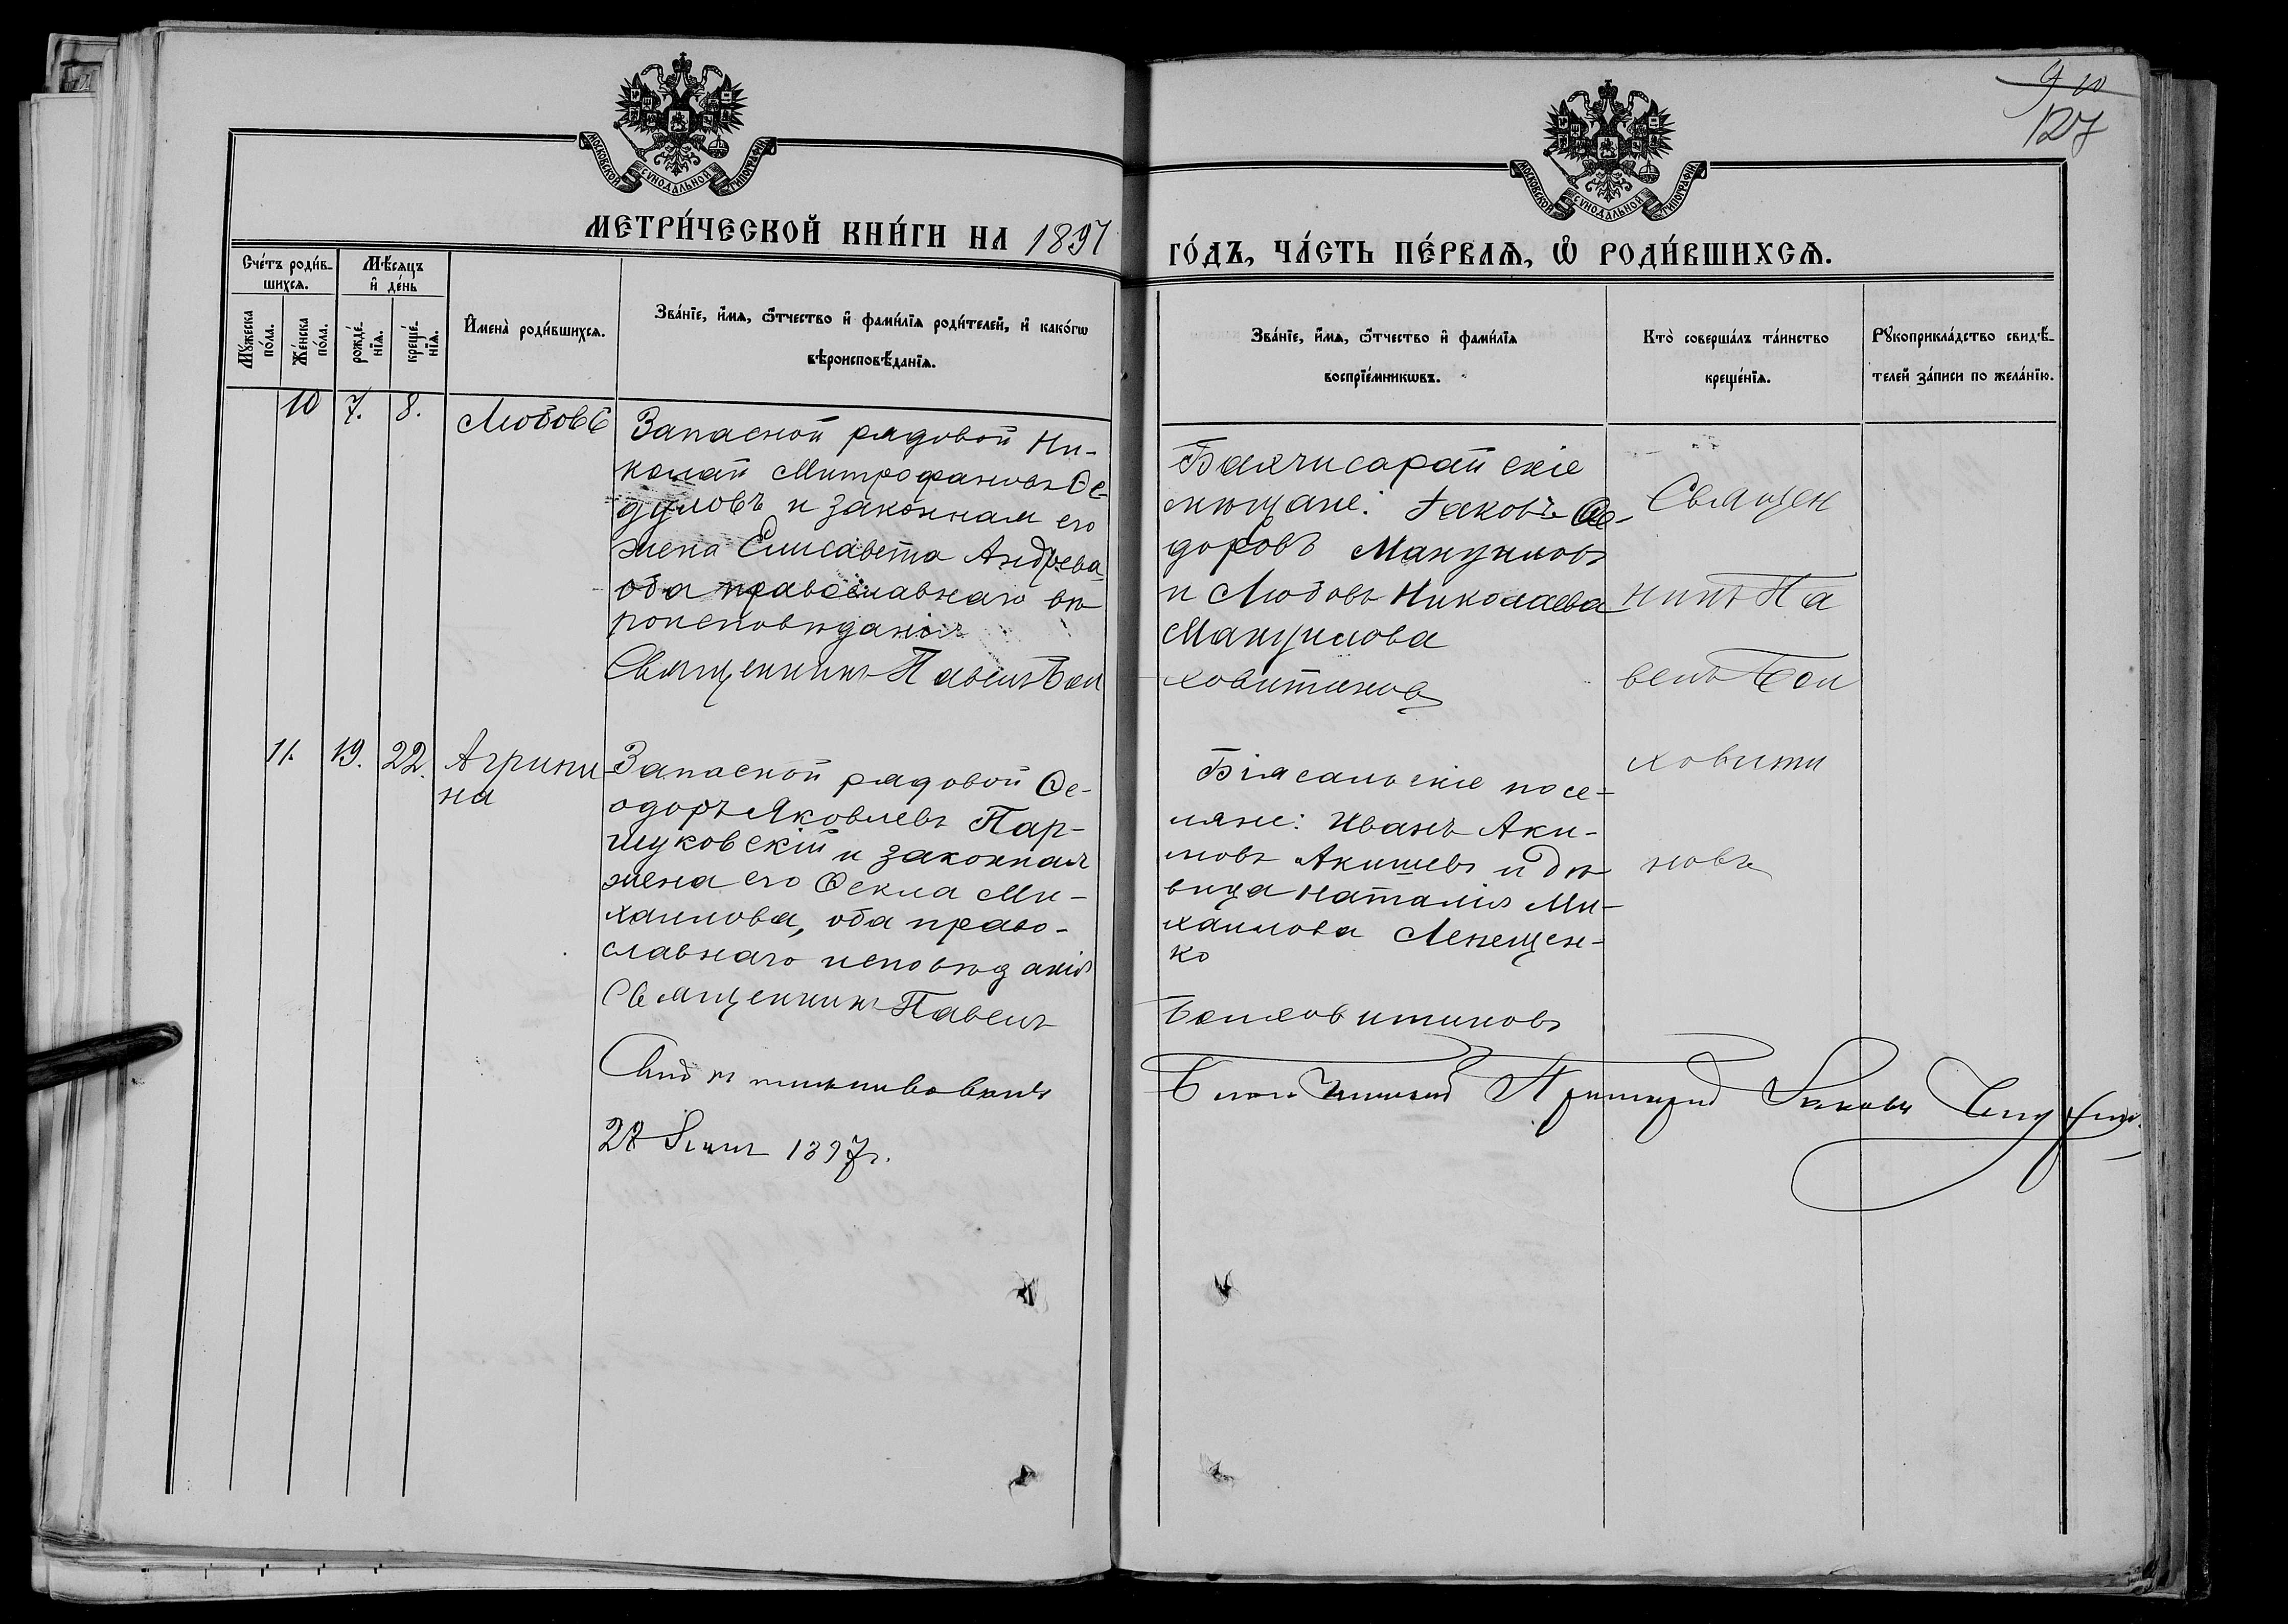 9 10
127
МОСКОВСКОЙ СѴНОДАЛЬНОЙ ТИПОГРАФІИ
МОСКОВСКОЙ СѴНОДАЛЬНОЙ ТИПОГРАФІИ
МЕТРИ́ЧЕСКОЙ КНИ́ГИ НА 1897
ГО́ДЪ, ЧА́СТЬ ПЕ́РВАѦ, Ѡ҆ РОДИ́ВШИХСѦ.
Сче́тъ роди́в-
шихсѧ.
Му́жеска
по́ла.
Же́нска
по́ла.
Мѣ́сѧцъ
и҆ де́нь
рожде́-
нїѧ.
креще́-
нїѧ.
И҆мена̀ роди́вшихсѧ.
Зва́нїе, и҆́мѧ, ѻ҆́тчество и҆ фами́лїѧ роди́телей, и҆ како́гѡ
вѣроисповѣ́данїѧ.
Зва́нїе, и҆́мѧ, ѻ҆́тчество и҆ фами́лїѧ
воспрїе́мникѡвъ.
Кто̀ соверша́лъ та́инство
креще́нїѧ.
Рꙋкоприкла́дство свидѣ́-
телей за́писи по жела́нїю.
10 7. 8. Любовь
Запасной рядовой Ни-
колай Митрофановъ Ѳе-
дуловъ и законная его
жена Елисавета Андреева
оба православнаго вѣ-
роисповѣданія
Священникъ Павелъ Бол
Бахчисарайскіе
мѣщане: Іаковъ Ѳе-
доровъ Мануиловъ
и Любовь Николаева
Мануилова
ховитиновъ
Священ
никъ Па
велъ Бол
ховити
новъ
11. 19. 22. Агрипи-
на
Запасной рядовой Ѳе-
одоръ Яковлевъ Пар-
шуковскій и законная
жена его Ѳекла Ми-
хаилова, оба право-
славнаго исповѣданія
Священникъ Павелъ
Біясальскіе посе-
ляне: Иванъ Аки-
мовъ Акишевъ и дѣ-
вица Наталія Ми-
хаилова Лепещен-
ко
Болховитиновъ
1897г.